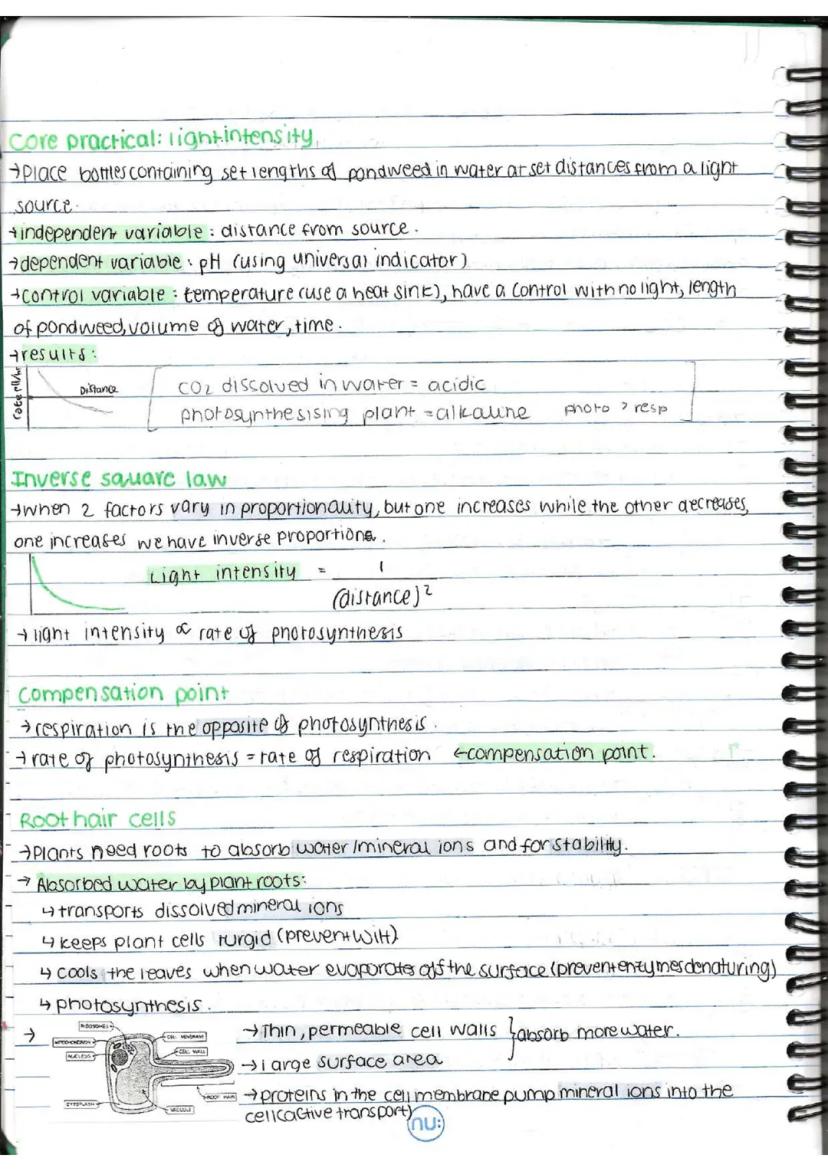 Core practical: light intensity
→Place bottles containing set lengths of pondweed in water at set distances from a light
source.
→independent variable: distance from source.
→dependent variable: pH (using universal indicator)
→control variable: temperature (use a heat sink), have a control with no light, length
of pondweed, volume of water, time.
→results:
rate pH/hr
Distance
CO2 dissolved in water = acidic
photosynthesising plant = alkaline photo > resp
Inverse square law
→when 2 factors vary in proportionality, but one increases while the other decreases,
one increases we have inverse proportion.
Light intensity = 1
(distance)²
→light intensity ∝ rate of photosynthesis
Compensation point
→respiration is the opposite of photosynthesis.
→rate of photosynthesis = rate of respiration ←compensation point.
Root hair cells
→Plants need roots to absorb water/mineral ions and for stability.
→Absorbed water by plant roots:
↳transports dissolved mineral ions
↳keeps plant cells turgid (prevent wilt)
↳cools the leaves when water evaporates off the surface (prevent enzymes denaturing)
↳photosynthesis.
→
RIBOSOMES
MITOCHONDRION
NUCLEUS
CYTOPLASM
CELL MEMBRANE
CELL WALL
ROOT HAIR
VACUOLE
→Thin, permeable cell walls } absorb more water.
→large surface area
→proteins in the cell membrane pump mineral ions into the
cell (active transport)
nu: